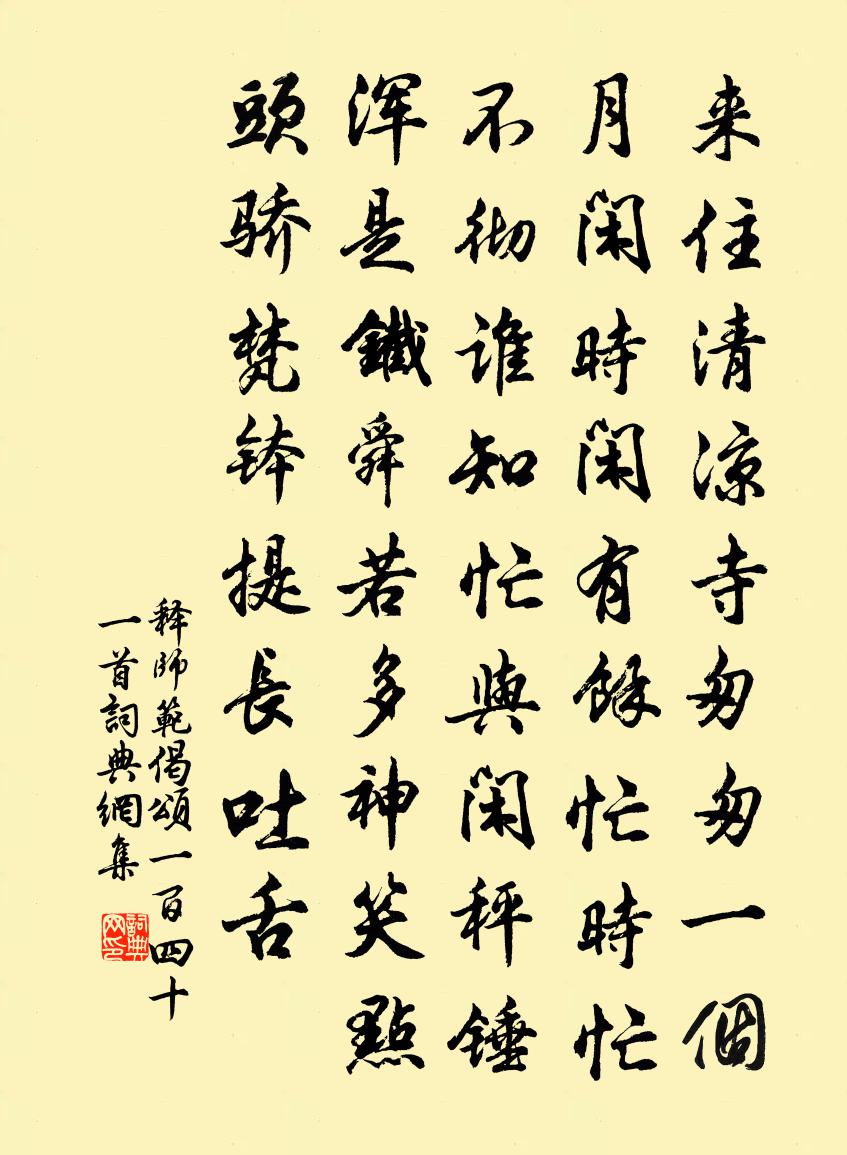 来住清凉寺匆匆一個
月闲時闲有餘忙時忙
不彻誰知忙與闲秤錘
浑是鐵舜若多神笑點
頭骄梵钵提長吐舌
释師範偈頌一百四十
一首詞典網集
詞典网印